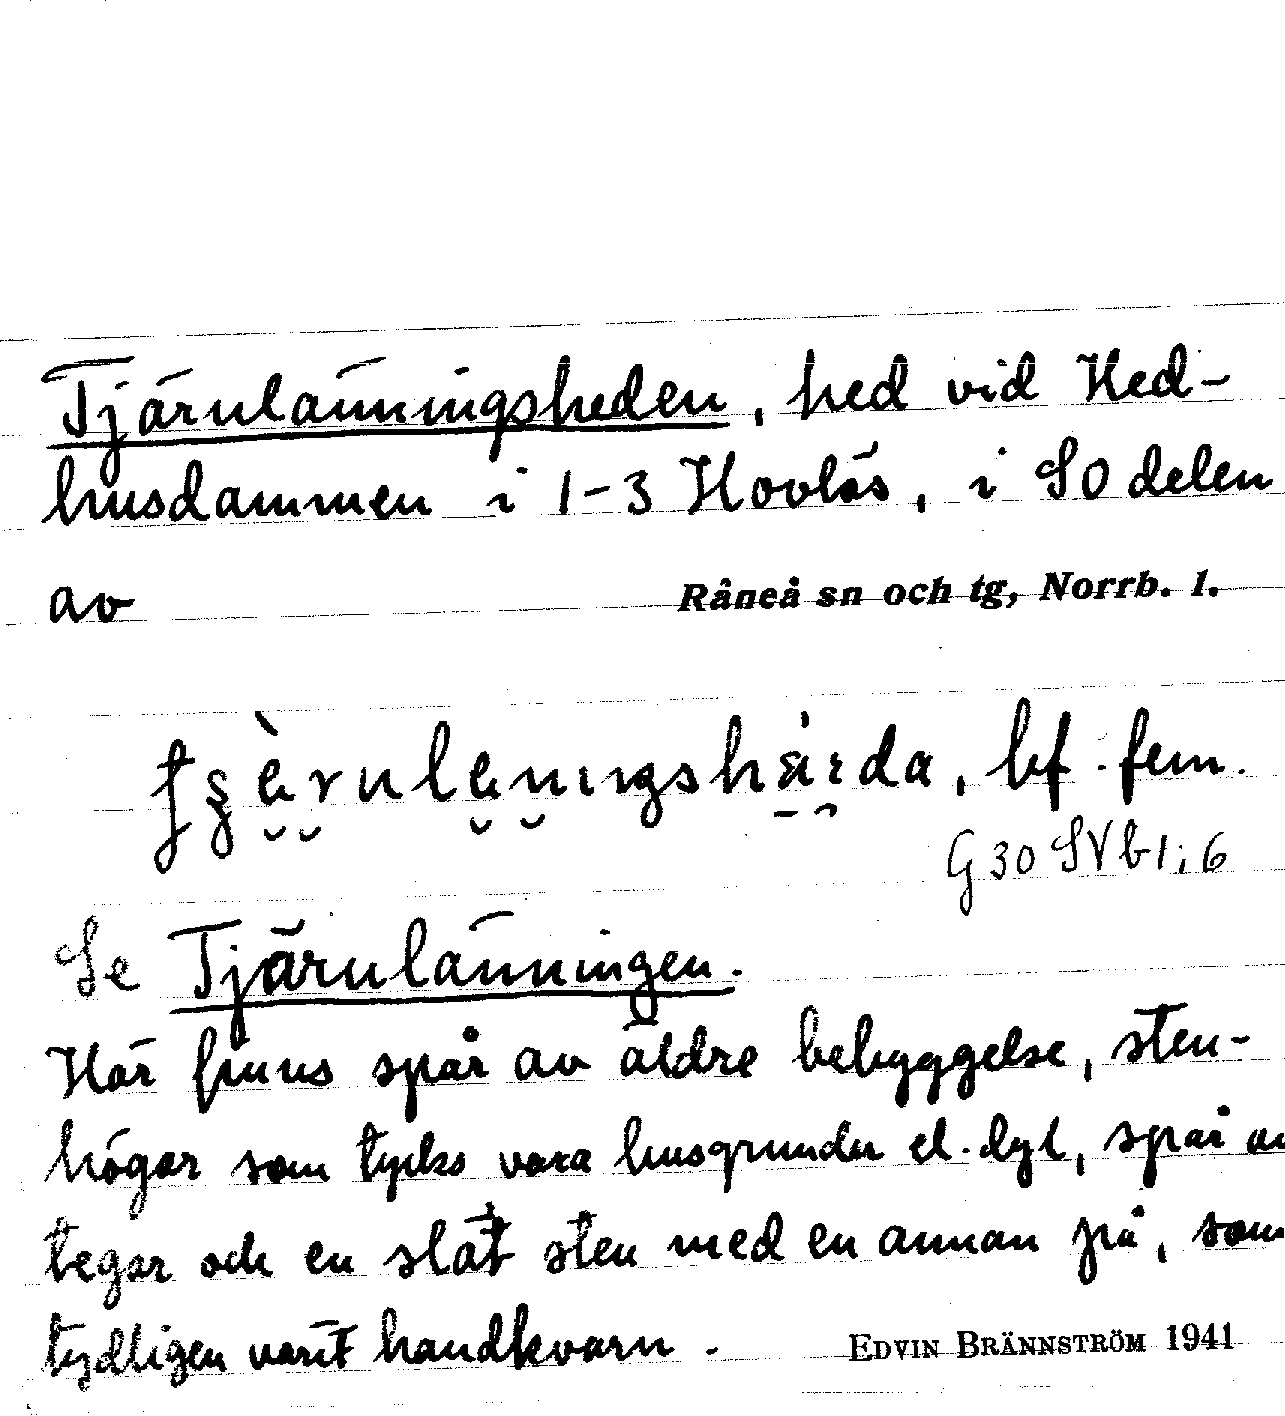 Tjärulänningsheden, hed vid Hed-
husdammen i 1-3 Hovlös, i SO delen
av Råneå sn och tg, Norrb. l.
bf. fem.
G30 SV b 1; 6
Se Tjärulänningen.
Här finns spår av äldre bebyggelse, sten-
högar som tycks vara husgrunder el. dyl, spår av
tegar och en slät sten med en annan på, som
tydligen varit handkvarn.
EDVIN BRÄNNSTRÖM 1941